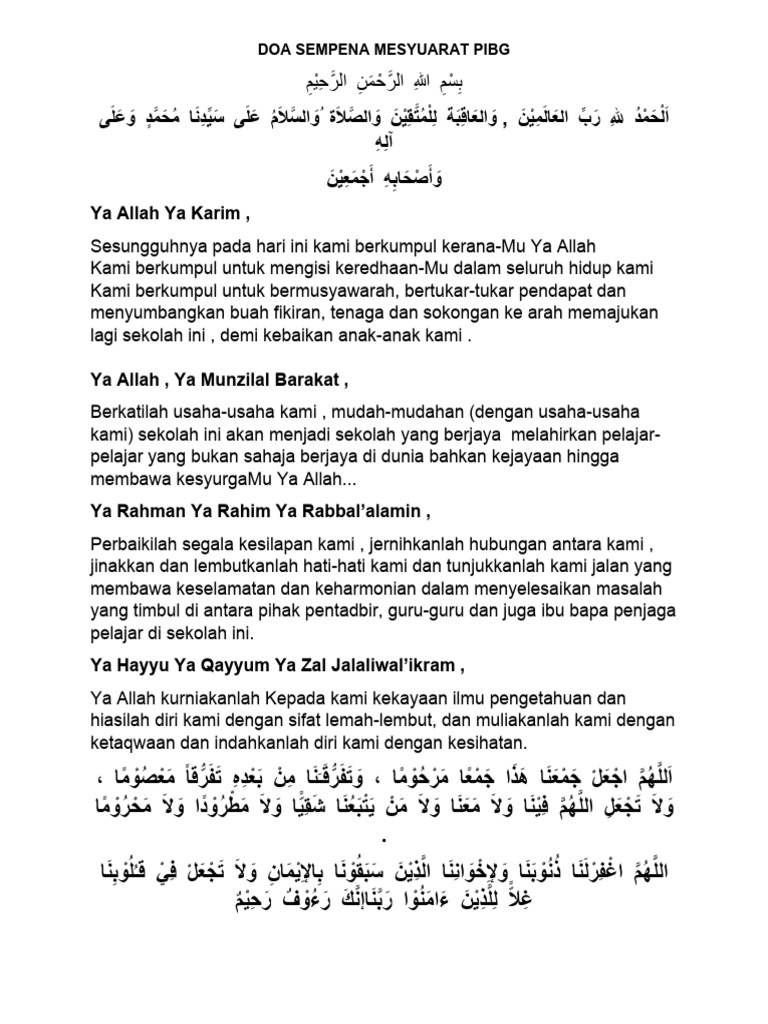 DOA SEMPENA MESYUARAT PIBG
بِسْمِ اللهِ الرَّحْمَنِ الرَّحِيْمِ
اَلْحَمْدُ للهِ رَبِّ العَالَمِيْنَ , وَالعَاقِبَة لِلْمُتَّقِيْنَ وَالصَّلاَة ُوَالسَّلاَمُ عَلَى سَيِّدِنَا مُحَمَّدٍ وَعَلَى
آلِهِ
وَأَصْحَابِهِ أَجْمَعِيْنَ
Ya Allah Ya Karim ,
Sesungguhnya pada hari ini kami berkumpul kerana-Mu Ya Allah
Kami berkumpul untuk mengisi keredhaan-Mu dalam seluruh hidup kami
Kami berkumpul untuk bermusyawarah, bertukar-tukar pendapat dan
menyumbangkan buah fikiran, tenaga dan sokongan ke arah memajukan
lagi sekolah ini , demi kebaikan anak-anak kami .
Ya Allah , Ya Munzilal Barakat ,
Berkatilah usaha-usaha kami , mudah-mudahan (dengan usaha-usaha
kami) sekolah ini akan menjadi sekolah yang berjaya  melahirkan pelajar-
pelajar yang bukan sahaja berjaya di dunia bahkan kejayaan hingga
membawa kesyurgaMu Ya Allah...
Ya Rahman Ya Rahim Ya Rabbal’alamin ,
Perbaikilah segala kesilapan kami , jernihkanlah hubungan antara kami ,
jinakkan dan lembutkanlah hati-hati kami dan tunjukkanlah kami jalan yang
membawa keselamatan dan keharmonian dalam menyelesaikan masalah
yang timbul di antara pihak pentadbir, guru-guru dan juga ibu bapa penjaga
pelajar di sekolah ini.
Ya Hayyu Ya Qayyum Ya Zal Jalaliwal’ikram ,
Ya Allah kurniakanlah Kepada kami kekayaan ilmu pengetahuan dan
hiasilah diri kami dengan sifat lemah-lembut, dan muliakanlah kami dengan
ketaqwaan dan indahkanlah diri kami dengan kesihatan.
اَللَّهُمَّ اجْعَلْ جَمْعَنَا هَذَا جَمْعًا مَرْحُوْمًا ، وَتَفَرُّقَنَا مِنْ بَعْدِهِ تَفَرُّقاً مَعْصُوْمًا ،
وَلاَ تَجْعَلِ اللَّهُمَّ فِيْنَا وَلاَ مَعَنَا وَلاَ مَنْ يَتْبَعُنَا شَقِيًّا وَلاَ مَطْرُوْدًا وَلاَ مَحْرُوْمًا
.
اللَّهُمَّ اغْفِرْلَنَا ذُنُوْبَنَا وَلإِخْوَانِنَا الَّذِيْنَ سَبَقُوْنَا بِالإِيْمَانِ وَلاَ تَجْعَلْ فِيْ قُلُوْبِنَا
غِلاًّ لِلَّذِيْنَ ءَامَنُوْا رَبَّنَاإِنَّكَ رَءُوْفٌ رَحِيْمٌ